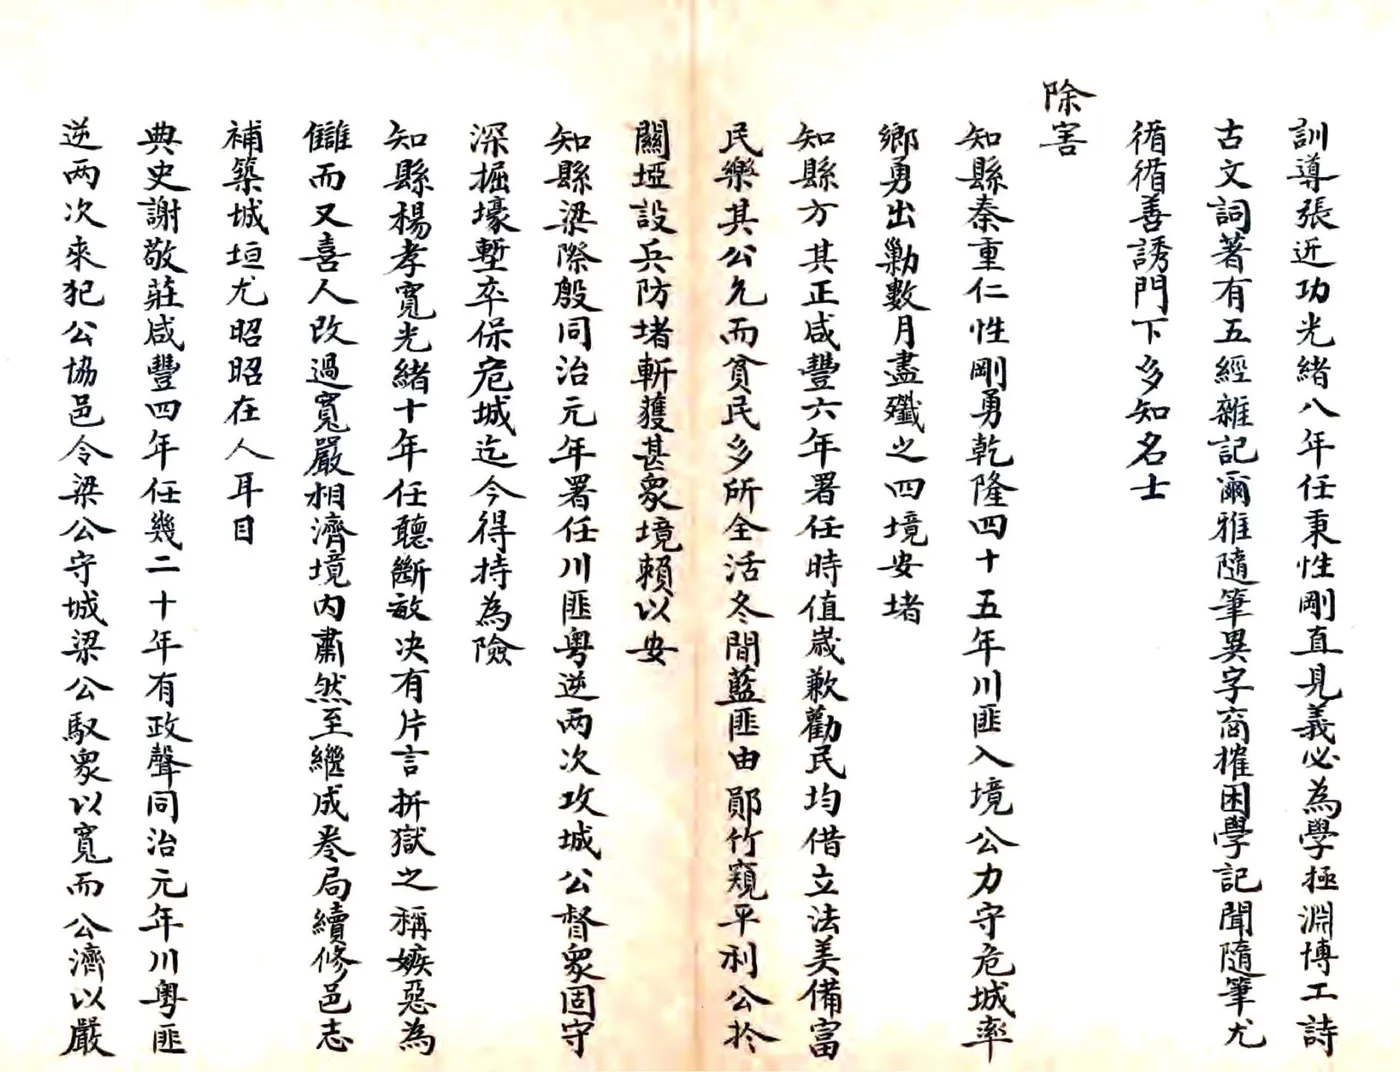 訓導張近功光緒八年任秉性剛直見義必為學極淵博工詩
古文詞著有五經雜記爾雅隨筆異字商搉困學記聞隨筆尤
循循善誘門下多知名士
除害
知縣秦重仁性剛勇乾隆四十五年川匪入境公力守危城率
鄉勇出勦數月盡殲之四境安堵
知縣方其正咸豐六年署任時值嵗歉勸民均借立法美備富
民樂其公允而貧民多所全活冬間藍匪由鄖竹窺平利公扵
關埡設兵防堵斬獲甚衆境賴以安
知縣梁際殷同治元年署任川匪粵逆两次攻城公督衆固守
深掘壕塹卒保危城迄今得持為險
知縣楊孝寬光緒十年任聽斷敏决有片言折獄之稱嫉惡為
讎而又喜人改過寬嚴相濟境內肅然至繼成巻局續修邑志
補築城垣尤昭昭在人耳目
典史謝敬莊咸豐四年任幾二十年有政聲同治元年川粵匪
逆两次來犯公協邑令梁公守城梁公馭衆以寬而公濟以嚴